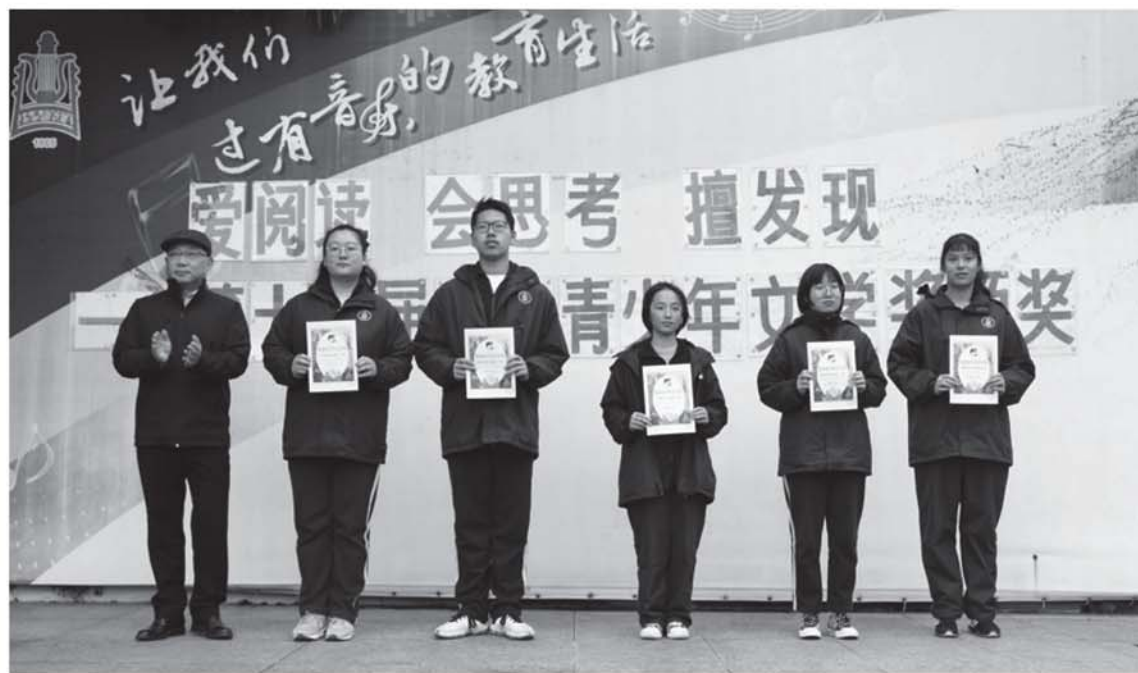 让我们
过有音乐的教育生活
1985
爱阅读 会思考 擅发现
十 届 青少年文学奖颁奖